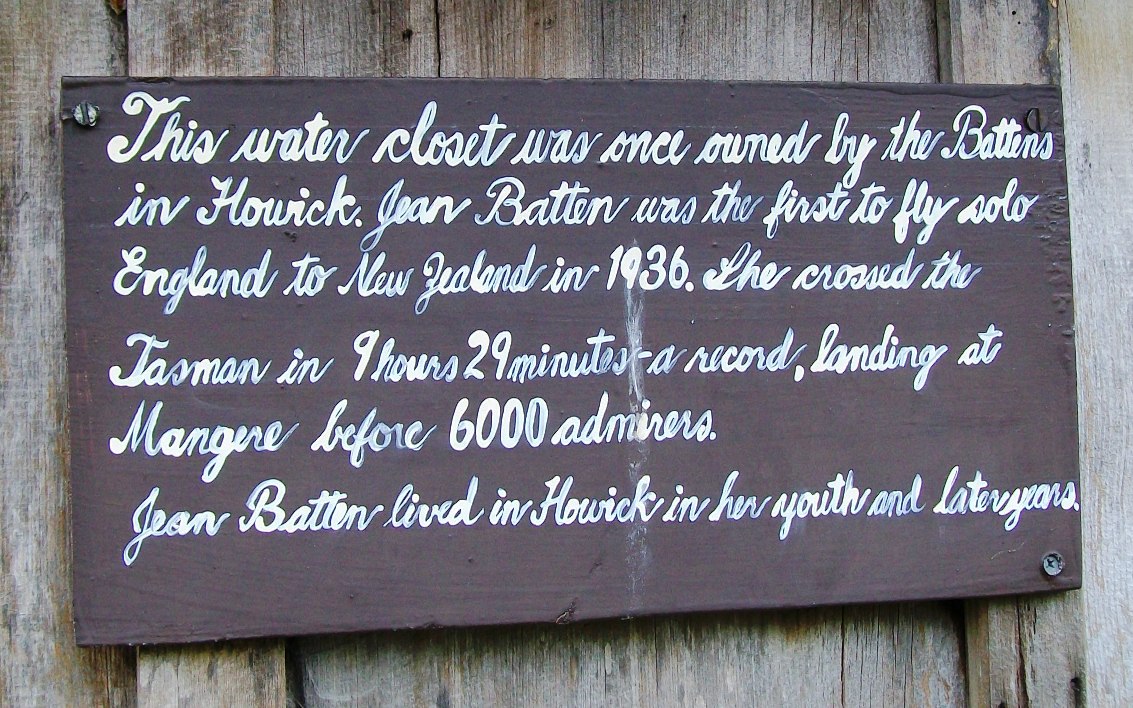 This water closet was once owned by the Battens
in Howick. Jean Batten was the first to fly solo
England to New Zealand in 1936. She crossed the
Tasman in 9 hours 29 minutes-a record, landing at
Mangere before 6000 admirers.
Jean Batten lived in Howick in her youth and later years.